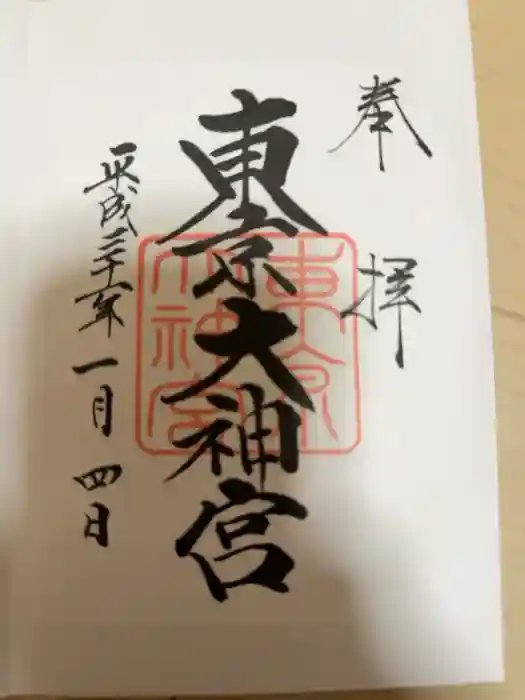 奉拝
東京大神宮
東京
大神宮
平成二十六年一月四日